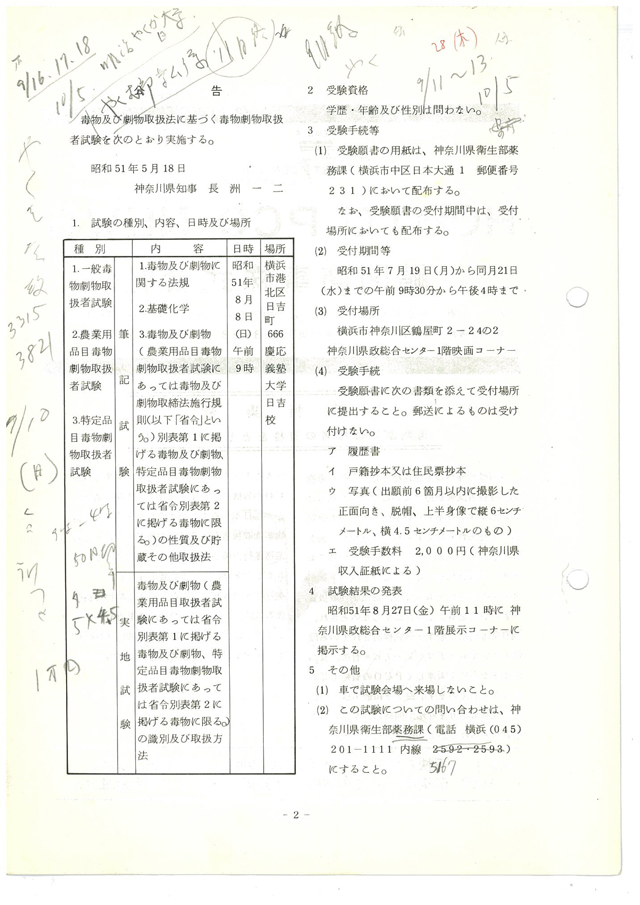 9/16.17.18
10/5.
28(木)
9/11〜13
10/5
公告
毒物及び劇物取扱法に基づく毒物劇物取扱
者試験を次のとおり実施する。
昭和51年5月18日
神奈川県知事 長洲一二
1. 試験の種別、内容、日時及び場所
種別 内容 日時 場所
1.一般毒
物劇物取
扱者試験
2.農業用
品目毒物
劇物取扱
者試験
3.特定品
目毒物劇
物取扱者
試験
筆記試験
1.毒物及び劇物に
関する法規
2.基礎化学
3.毒物及び劇物
(農業用品目毒物
劇物取扱者試験に
あっては毒物及び
劇物取締法施行規
則(以下「省令」とい
う。)別表第1に掲
げる毒物及び劇物、
特定品目毒物劇物
取扱者試験にあっ
ては省令別表第2
に掲げる毒物に限
る。)の性質及び貯
蔵その他取扱法
実地試験
毒物及び劇物(農
業用品目取扱者試
験にあっては省令
別表第1に掲げる
毒物及び劇物、特
定品目毒物劇物取
扱者試験にあって
は省令別表第2に
掲げる毒物に限る。)
の識別及び取扱方
法
昭和
51年
8月
8日
(日)
午前
9時
横浜
市港
北区
日吉
町
666
慶応
義塾
大学
日吉
校
3315
3821
9/10
(月)
5×4.5
2 受験資格
学歴・年齢及び性別は問わない。
3 受験手続等
(1) 受験願書の用紙は、神奈川県衛生部薬
務課(横浜市中区日本大通1 郵便番号
231)において配布する。
なお、受験願書の受付期間中は、受付
場所においても配布する。
(2) 受付期間等
昭和51年7月19日(月)から同月21日
(水)までの午前9時30分から午後4時まで
(3) 受付場所
横浜市神奈川区鶴屋町2-24の2
神奈川県政総合センター1階映画コーナー
(4) 受験手続
受験願書に次の書類を添えて受付場所
に提出すること。郵送によるものは受け
付けない。
ア 履歴書
イ 戸籍抄本又は住民票抄本
ウ 写真(出願前6箇月以内に撮影した
正面向き、脱帽、上半身像で縦6センチ
メートル、横4.5センチメートルのもの)
エ 受験手数料 2,000円(神奈川県
収入証紙による)
4 試験結果の発表
昭和51年8月27日(金)午前11時に神
奈川県政総合センター1階展示コーナーに
掲示する。
5 その他
(1) 車で試験会場へ来場しないこと。
(2) この試験についての問い合わせは、神
奈川県衛生部薬務課(電話 横浜(045)
201-1111 内線 2592・2593)
にすること。 5167
- 2 -